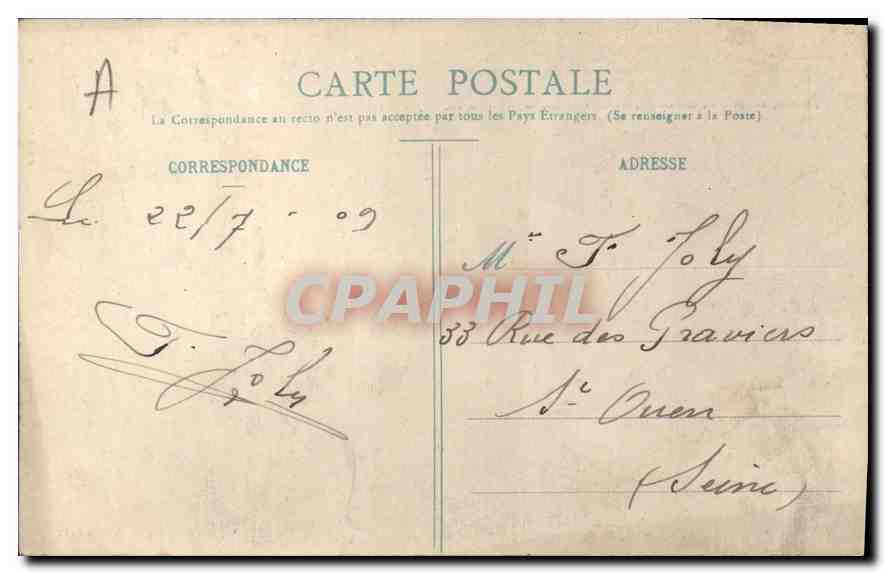 A
CARTE POSTALE
La Correspondance au recto n'est pas acceptée par tous les Pays Étrangers. (Se renseigner à la Poste)
CORRESPONDANCE
Le 22/7 - 09
T. Joly
ADRESSE
Mr T. Joly
33 Rue des Graviers
St Ouen
(Seine)
CPAPHIL